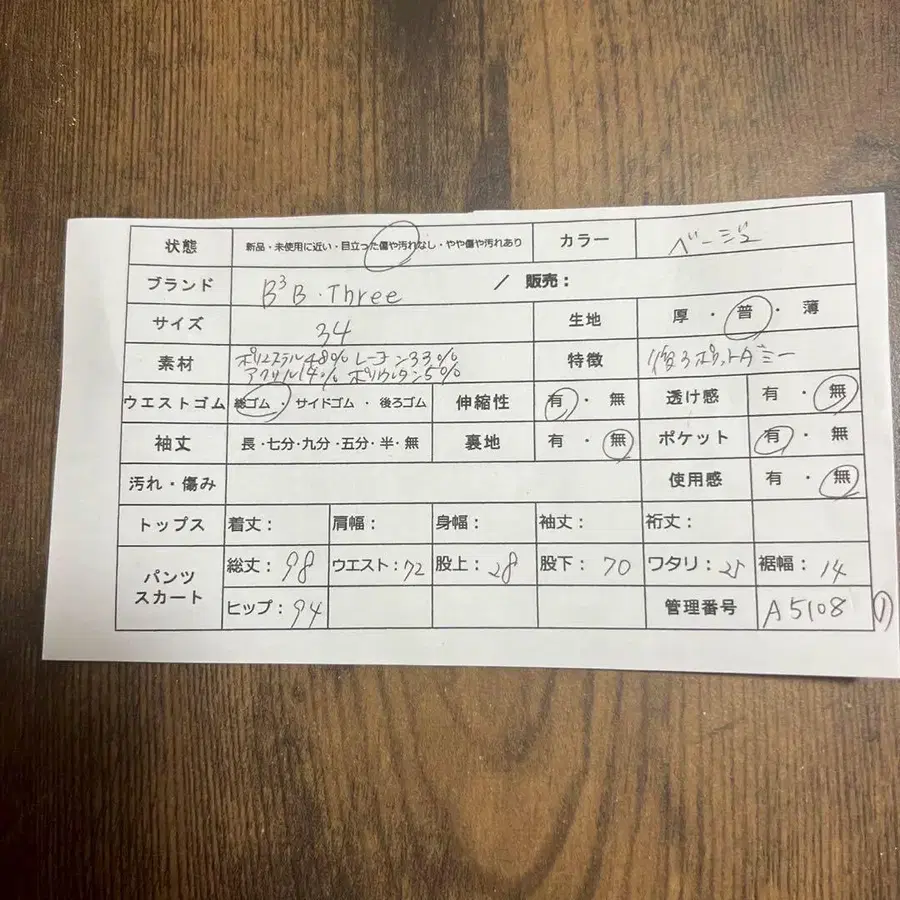 状態 新品・未使用に近い・目立った傷や汚れなし・やや傷や汚れあり カラー ベージュ
ブランド B³ B・Three / 販売:
サイズ 34 生地 厚・普・薄
素材 ポリエステル48% レーヨン33% 特徴 後ろポケットダミー
アクリル14% ポリウレタン5%
ウエストゴム 総ゴム・サイドゴム・後ろゴム 伸縮性 有・無 透け感 有・無
袖丈 長・七分・九分・五分・半・無 裏地 有・無 ポケット 有・無
汚れ・傷み 使用感 有・無
トップス 着丈: 肩幅: 身幅: 袖丈: 裄丈:
パンツ スカート 総丈:98 ウエスト:72 股上:28 股下:70 ワタリ:25 裾幅:14
ヒップ:94 管理番号 A5108 ①